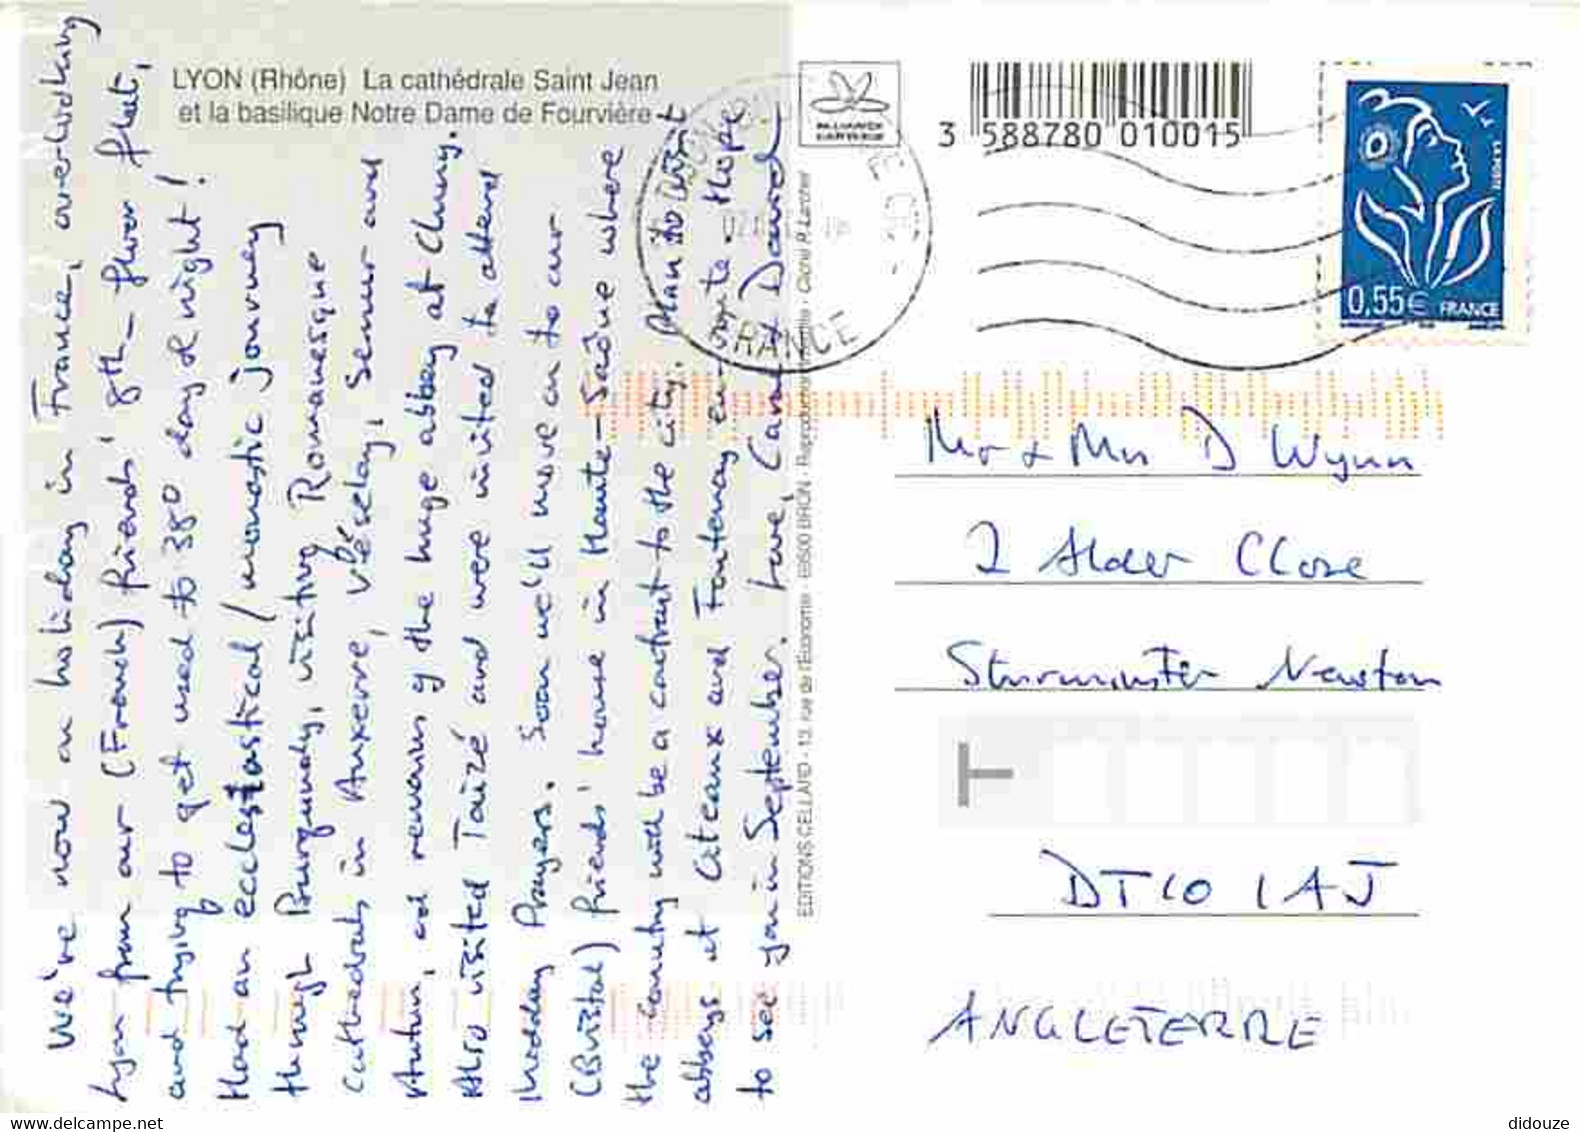 LYON (Rhône) La cathédrale Saint Jean
et la basilique Notre Dame de Fourvière
We're now on holiday in France, overlooking
Lyon from our (French) friends' 8th-floor flat,
and trying to get used to 38° day & night!
Had an ecclesiastical/monastic journey
through Burgundy, visiting Romanesque
Cathedrals in Auxerre, Vézelay, Semur and
Autun, and remains of the huge abbey at Cluny.
Also visited Taizé and were invited to attend
midday Prayers. Soon we'll move on to our
(Bristol) friends' house in Haute-Saône where
the country will be a contrast to the city. Plan to visit
abbeys at Citeaux and Fontenay en-route - Hope
to see you in September. Love, David
EDITIONS CELLARD - 13, rue de l'Economie - 69500 BRON - Reproduction interdite - Cliché P. Larcher
ALLIANCE
CARTERIE
3 588780 010015
FRANCE
0,55€ FRANCE
Mr & Mrs D Wynn
2 Alder Close
Sturminster Newton
DT10 1AJ
ANGLETERRE
T
didouze